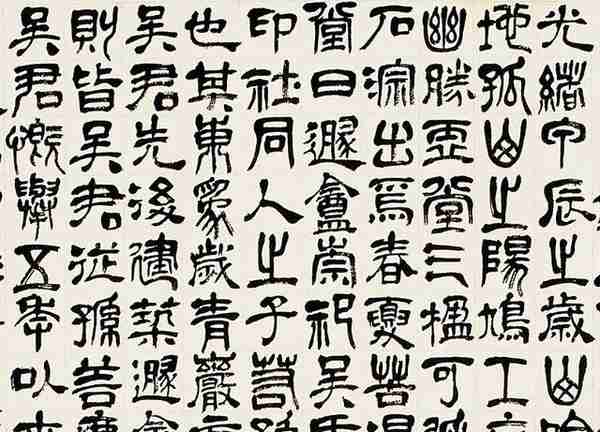 光緒甲辰之歲山
地孤山之陽鳩工
幽勝堂三楹可
石淙出焉春夏
堂曰遯盦崇祀吳氏
印社同人之子
也其東爲歲青巖
吳君先後建築遯盦
則皆吳君從孫善
吳君慨舉五年以來